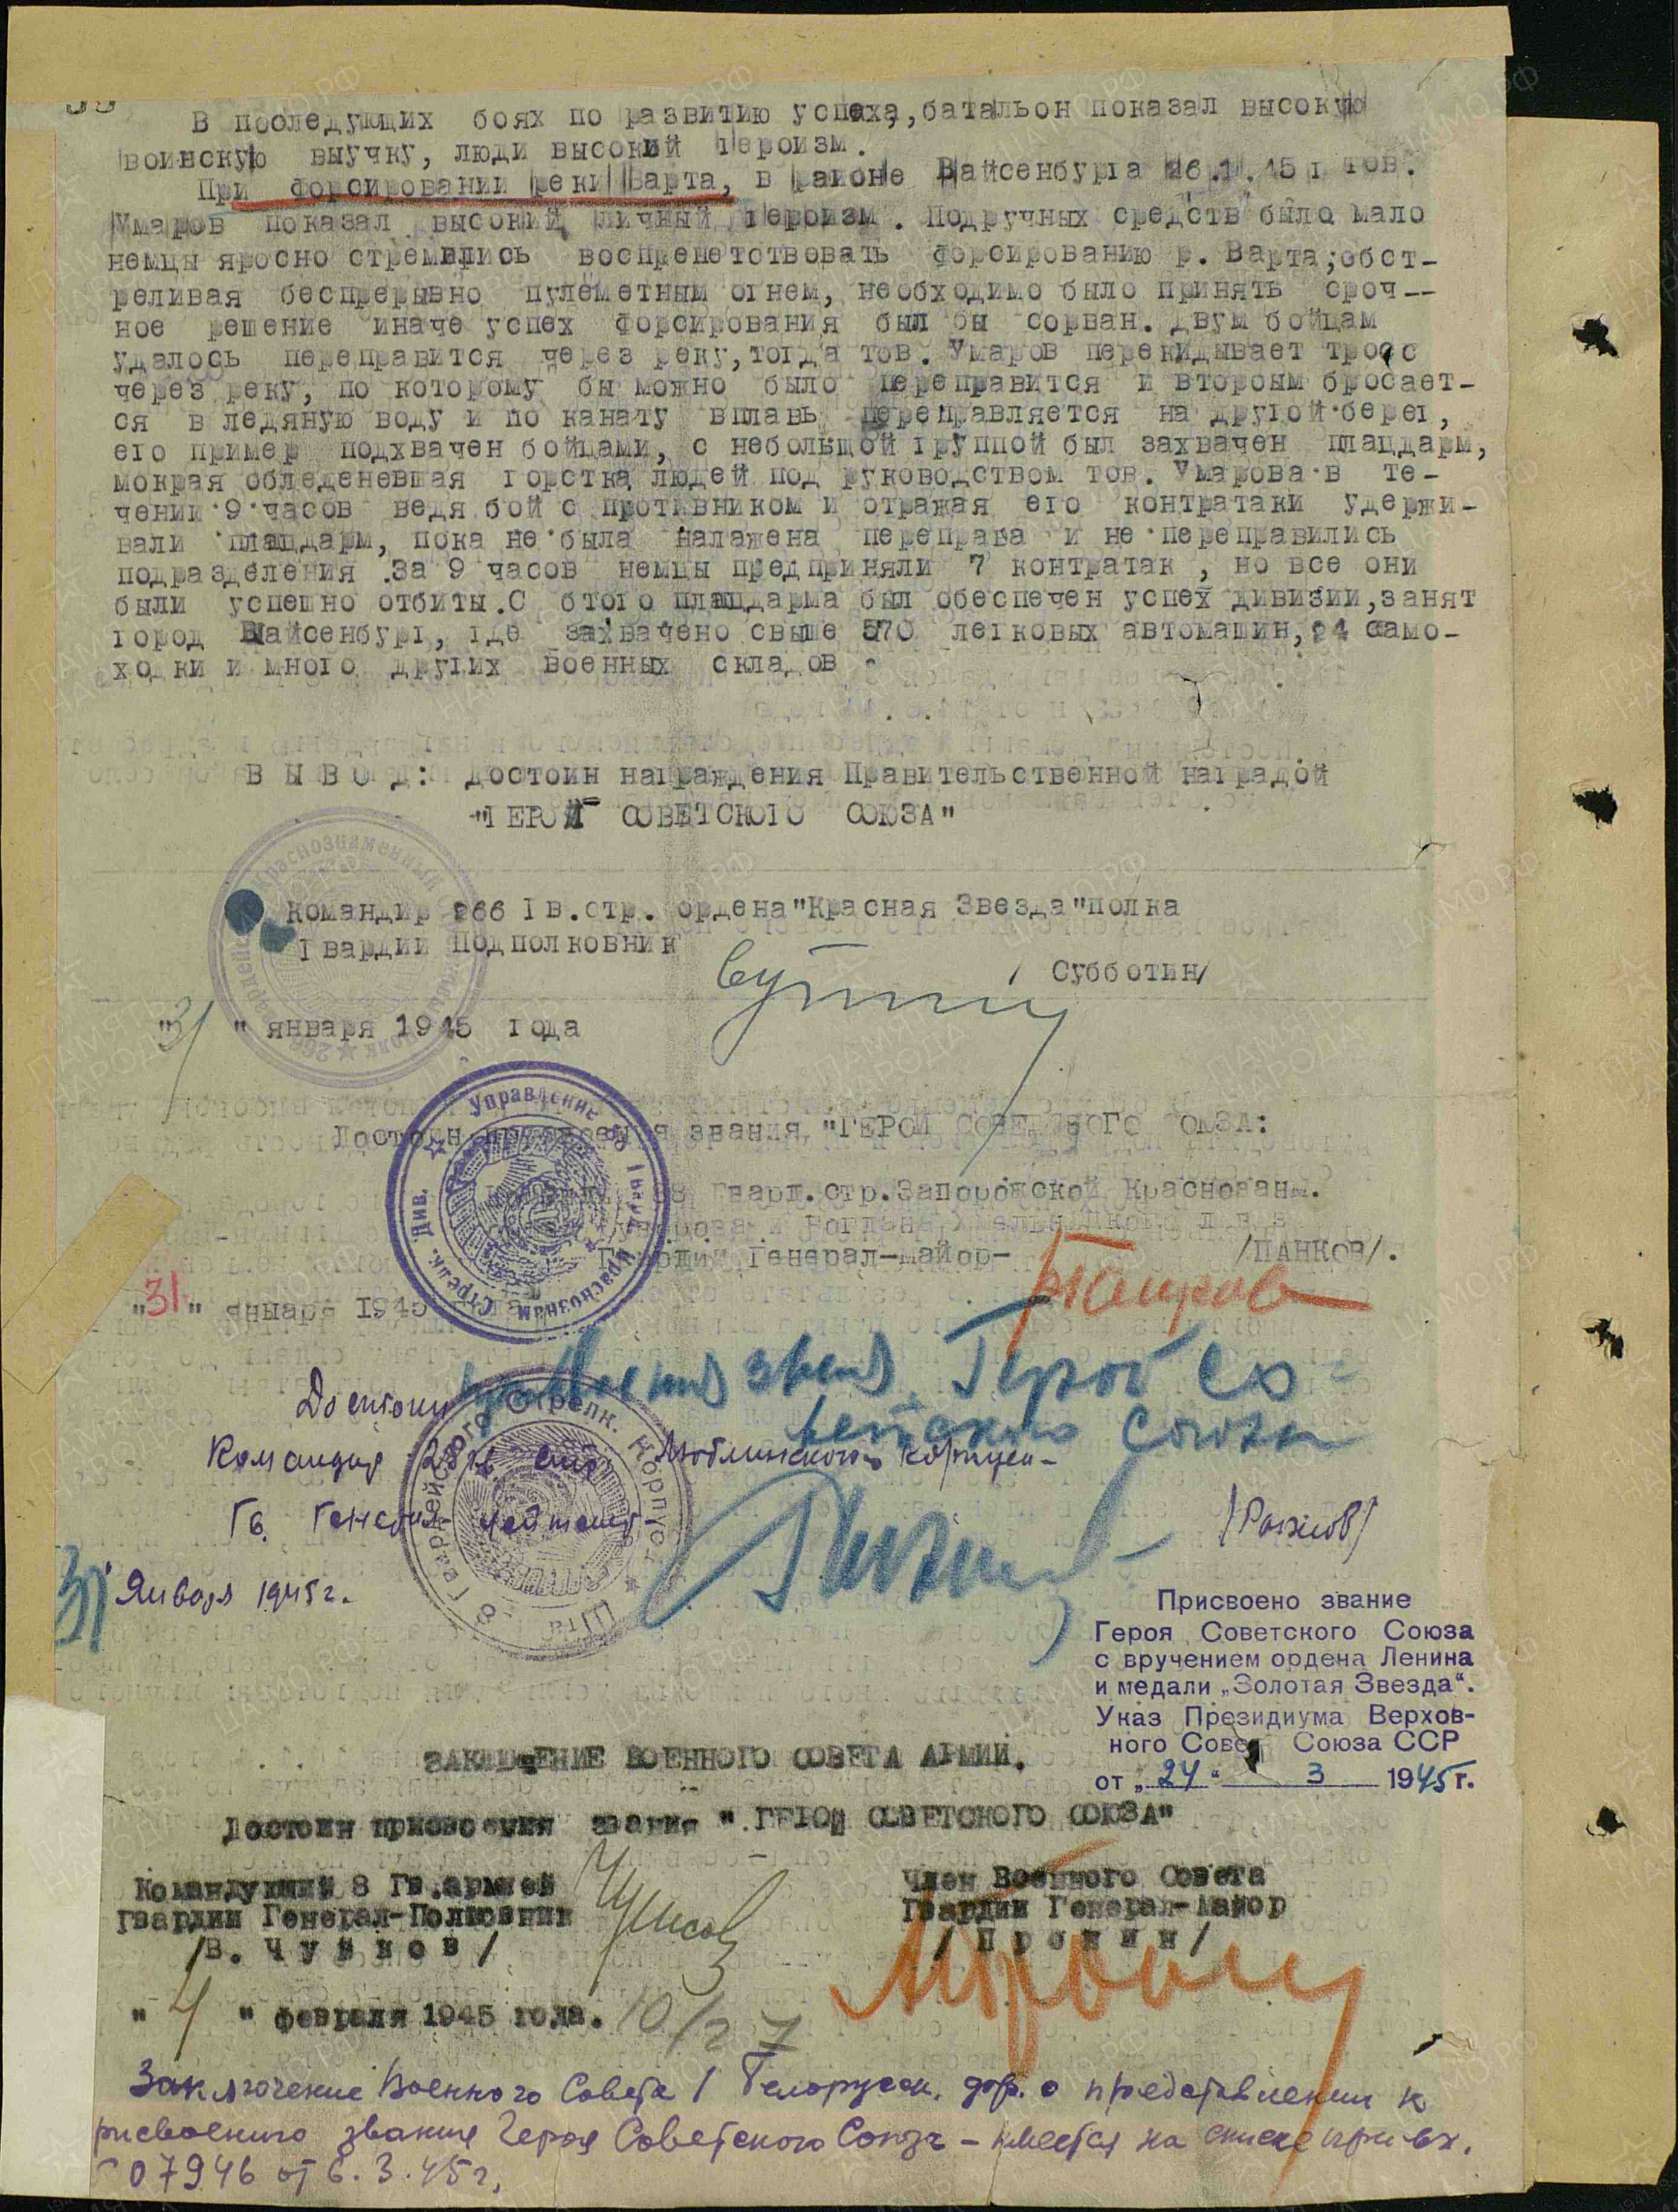 В последующих боях по развитию успеха, батальон показал высокую
воинскую выучку, люди высокий героизм.
При форсировании реки Варта, в районе Вайсенбурга 26.1.45 г тов.
Умаров показал высокий личный героизм. Подручных средств было мало
немцы яросно стремились воспрепетствовать форсированию р. Варта; обст-
реливая беспрерывно пулеметным огнем, необходимо было принять сроч--
ное решение иначе успех форсирования был бы сорван. Двум бойцам
удалось переправится через реку, тогда тов. Умаров перекидывает тросс
через реку, по которому бы можно было переправится и вторым бросает-
ся в ледяную воду и по канату вплавь переправляется на другой берег,
его пример подхвачен бойцами, с небольшой группой был захвачен плацдарм,
мокрая обледеневшая горстка людей под руководством тов. Умарова в те-
чении 9 часов ведя бой с противником и отражая его контратаки удержи-
вали плацдарм, пока не была налажена переправа и не переправились
подразделения. За 9 часов немцы предприняли 7 контратак, но все они
были успешно отбиты. С этого плацдарма был обеспечен успех дивизии, занят
город Вайсенбург, где захвачено свыше 570 легковых автомашин, 24 само-
ходки и много других военных складов.
ВЫВОД: Достоин награждения Правительственной наградой
"ГЕРОЙ СОВЕТСКОГО СОЮЗА"
Командир 266 Гв. стр. ордена "Красная Звезда" полка
Гвардии Подполковник
/Субботин/
"31" января 1945 года
Управление
Достоин присвоения звания "ГЕРОЙ СОВЕТСКОГО СОЮЗА:
Гвард. стр. Запорожской Краснознам.
Гвардии Генерал-майор-
/ПАНКОВ/.
"31" января 1945
Достоин присвоения звания Герой Со-
ветского Союза
Командир 28 гв Люблинского корпуса-
Гв. Генерал-лейтенант-
/Рыжов/
31 Января 1945 г.
Присвоено звание
Героя Советского Союза
с вручением ордена Ленина
и медали „Золотая Звезда“.
Указ Президиума Верхов-
ного Совет Союза ССР
от „24“ 3 1945 г.
ЗАКЛЮЧЕНИЕ ВОЕННОГО СОВЕТА АРМИИ.
Достоин присвоения звания "ГЕРОЙ СОВЕТСКОГО СОЮЗА"
Командующий 8 Гв. армией
Гвардии Генерал-Полковник
/В. Чуйков/
Член Военного Совета
Гвардии Генерал-Майор
/Пронин/
"4" февраля 1945 года.
Заключение Военного Совета 1 Белорусск. фр. о представлении к
рисвоению звания Героя Советского Союза - имеется на списке при вх.
07946 от 6.3.45 г.